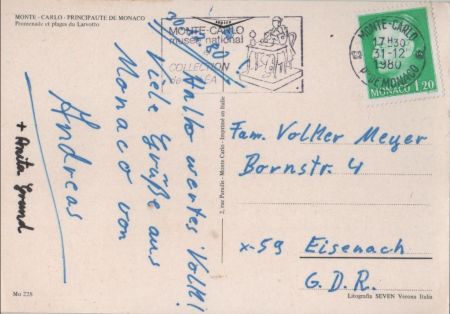 MONTE - CARLO - PRINCIPAUTE DE MONACO
Promenade et plages du Larvotto
30/12 80
Hallo wertes Volk!
Viele Grüße aus
Monaco von
Andreas
+ Anita Grund
MONTE-CARLO
musée national
COLLECTION
de GALEA
MONTE-CARLO
17H30
31-12
1980
Pté DE MONACO
MONACO 1,20
2, rue Portalis - Monte Carlo - Imprimé en Italie
Fam. Volker Meyer
Bornstr. 4
x-59 Eisenach
G.D.R.
Mo 228
Litografia SEVEN Verona Italia